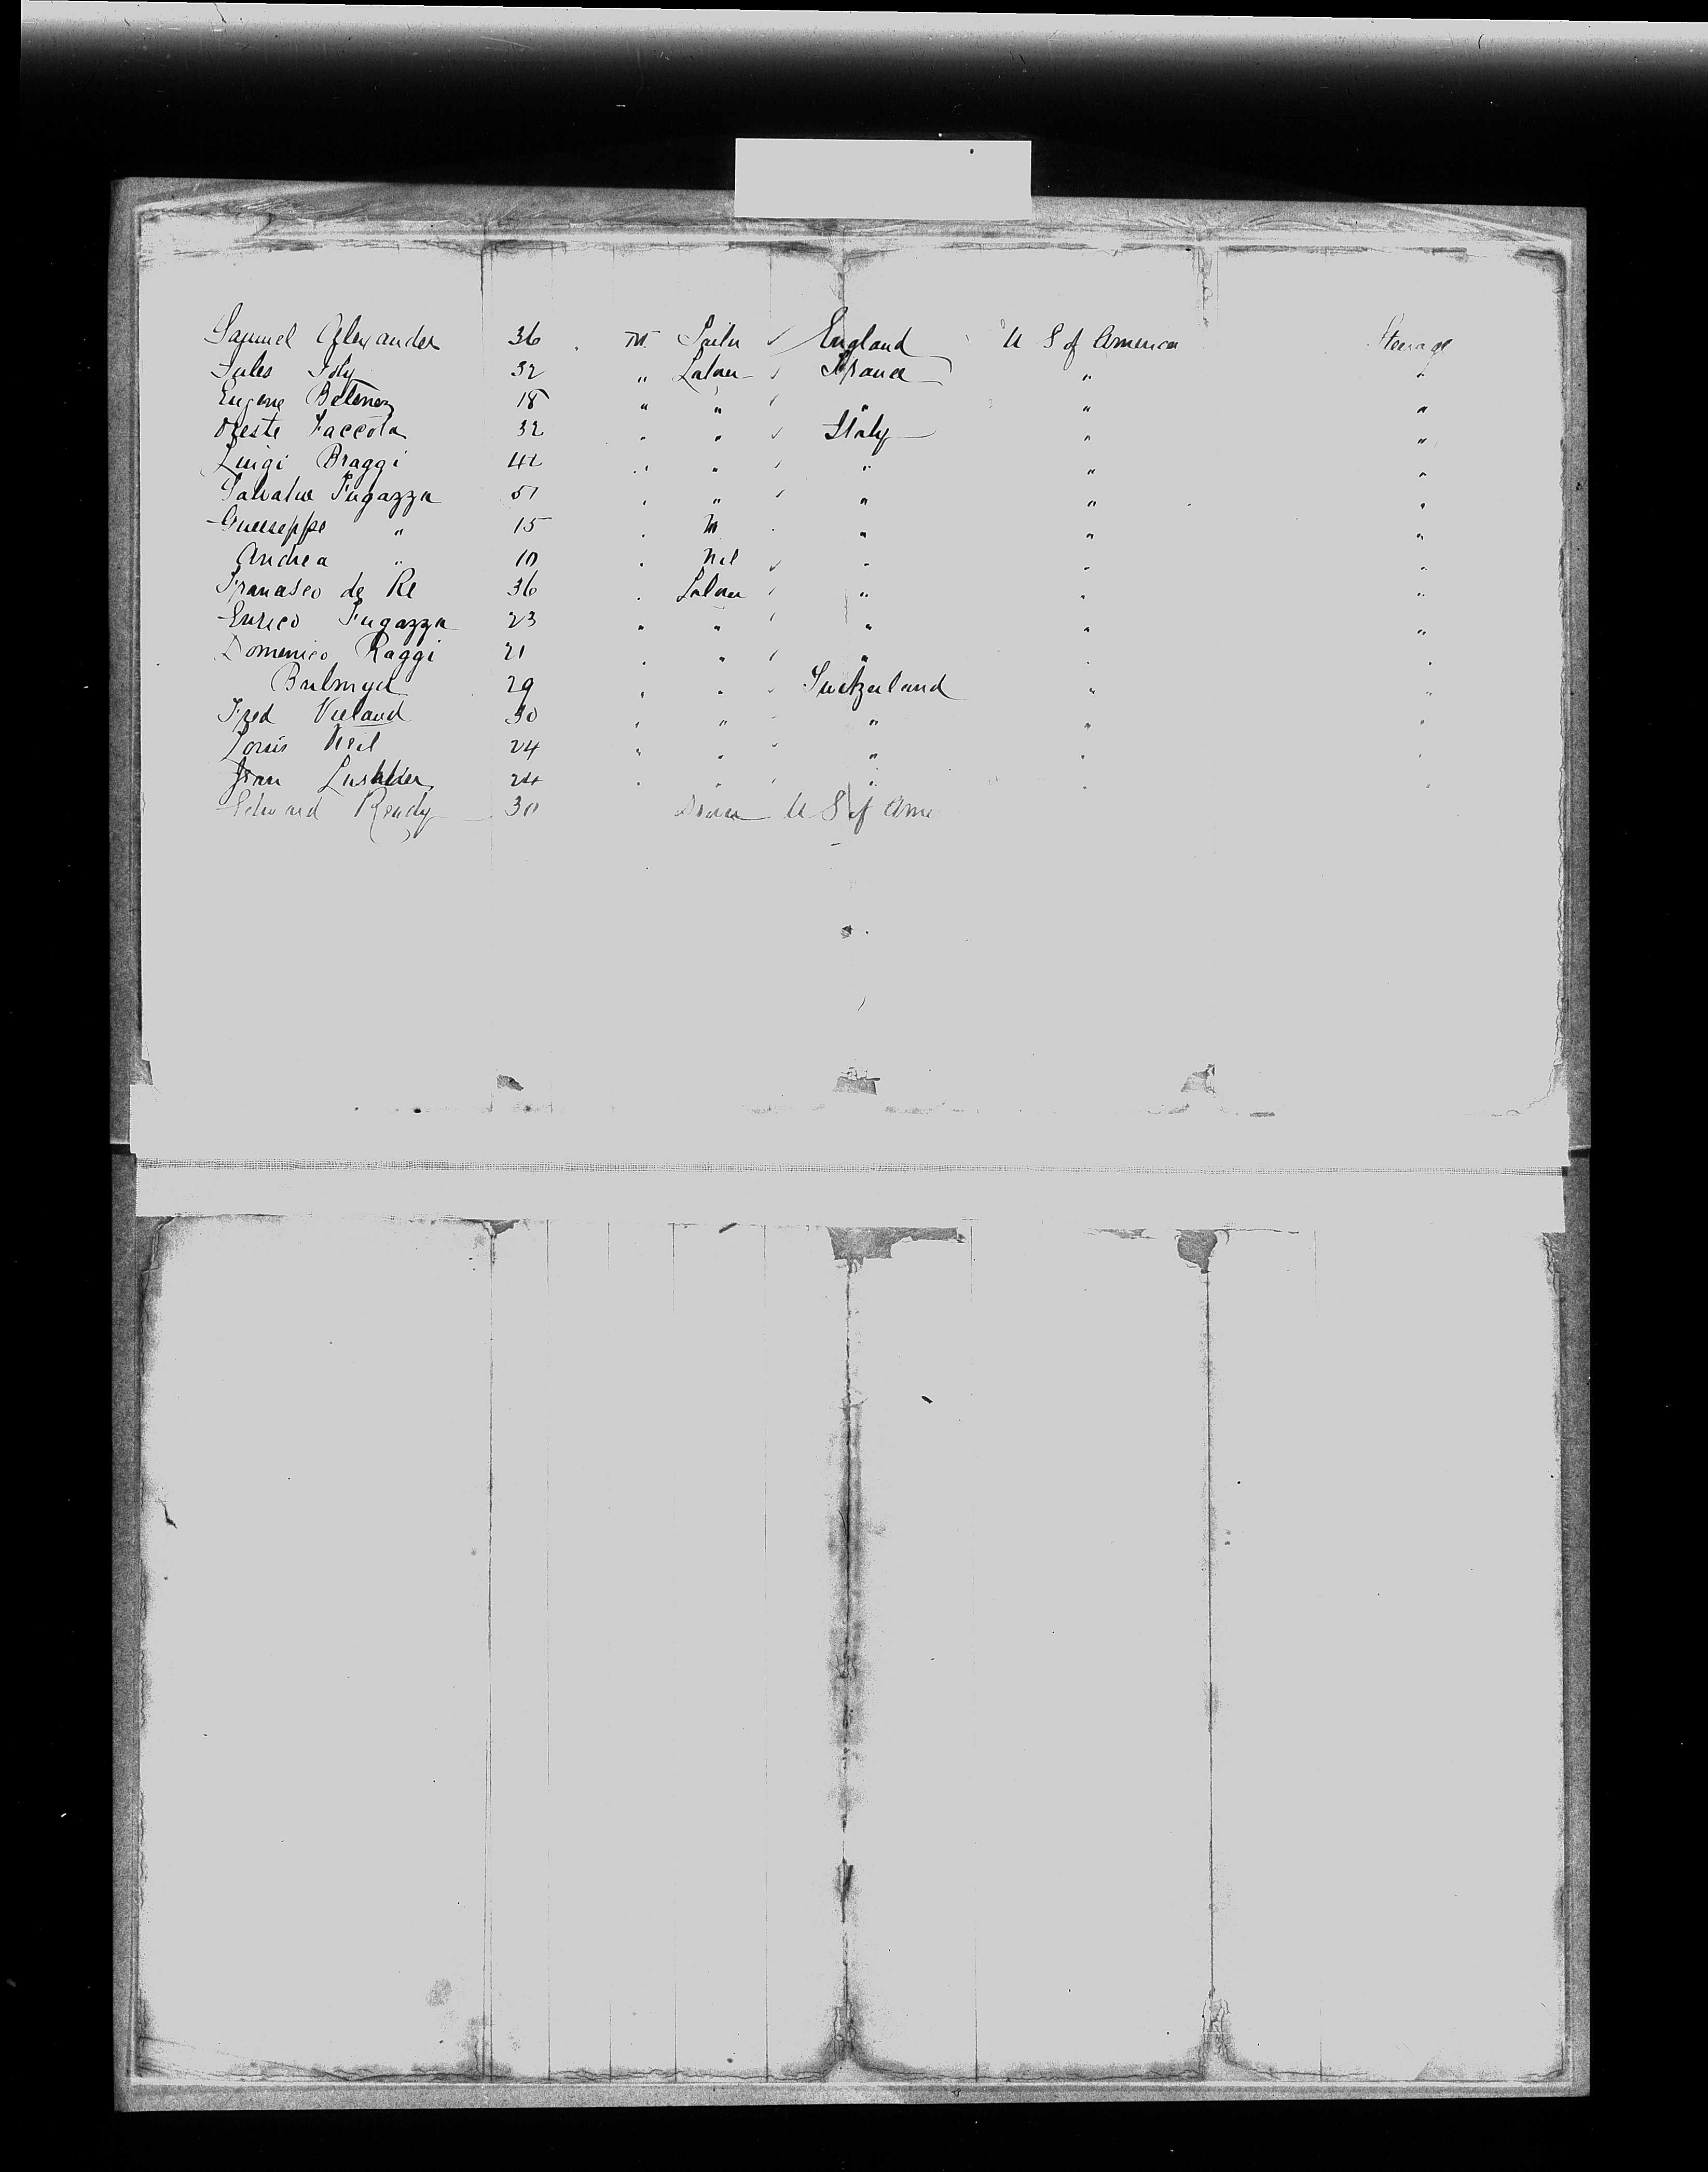 Samuel Alexander 36 M Sailor England U S of America Steerage
Jules Joly 32 " Labour France " "
Eugene 18 " " " " "
Oreste Faccota 32 " " Italy " "
Luigi Braggi 42 " " " " "
Salvatue Fugazza 51 " " " " "
Gueeseppe " 15 " " " "
Andrea " 10 " Nil " " "
Francisco de Re 36 " Labour " " "
Enrico Fugazza 23 " " " " "
Domenico Raggi 21 " " " " "
29 " " Switzerland " "
Fred Vieland 30 " " " " "
Louis 24 " " " " "
Jean 24 " " " " "
Edward Ready 30 U S of Ame